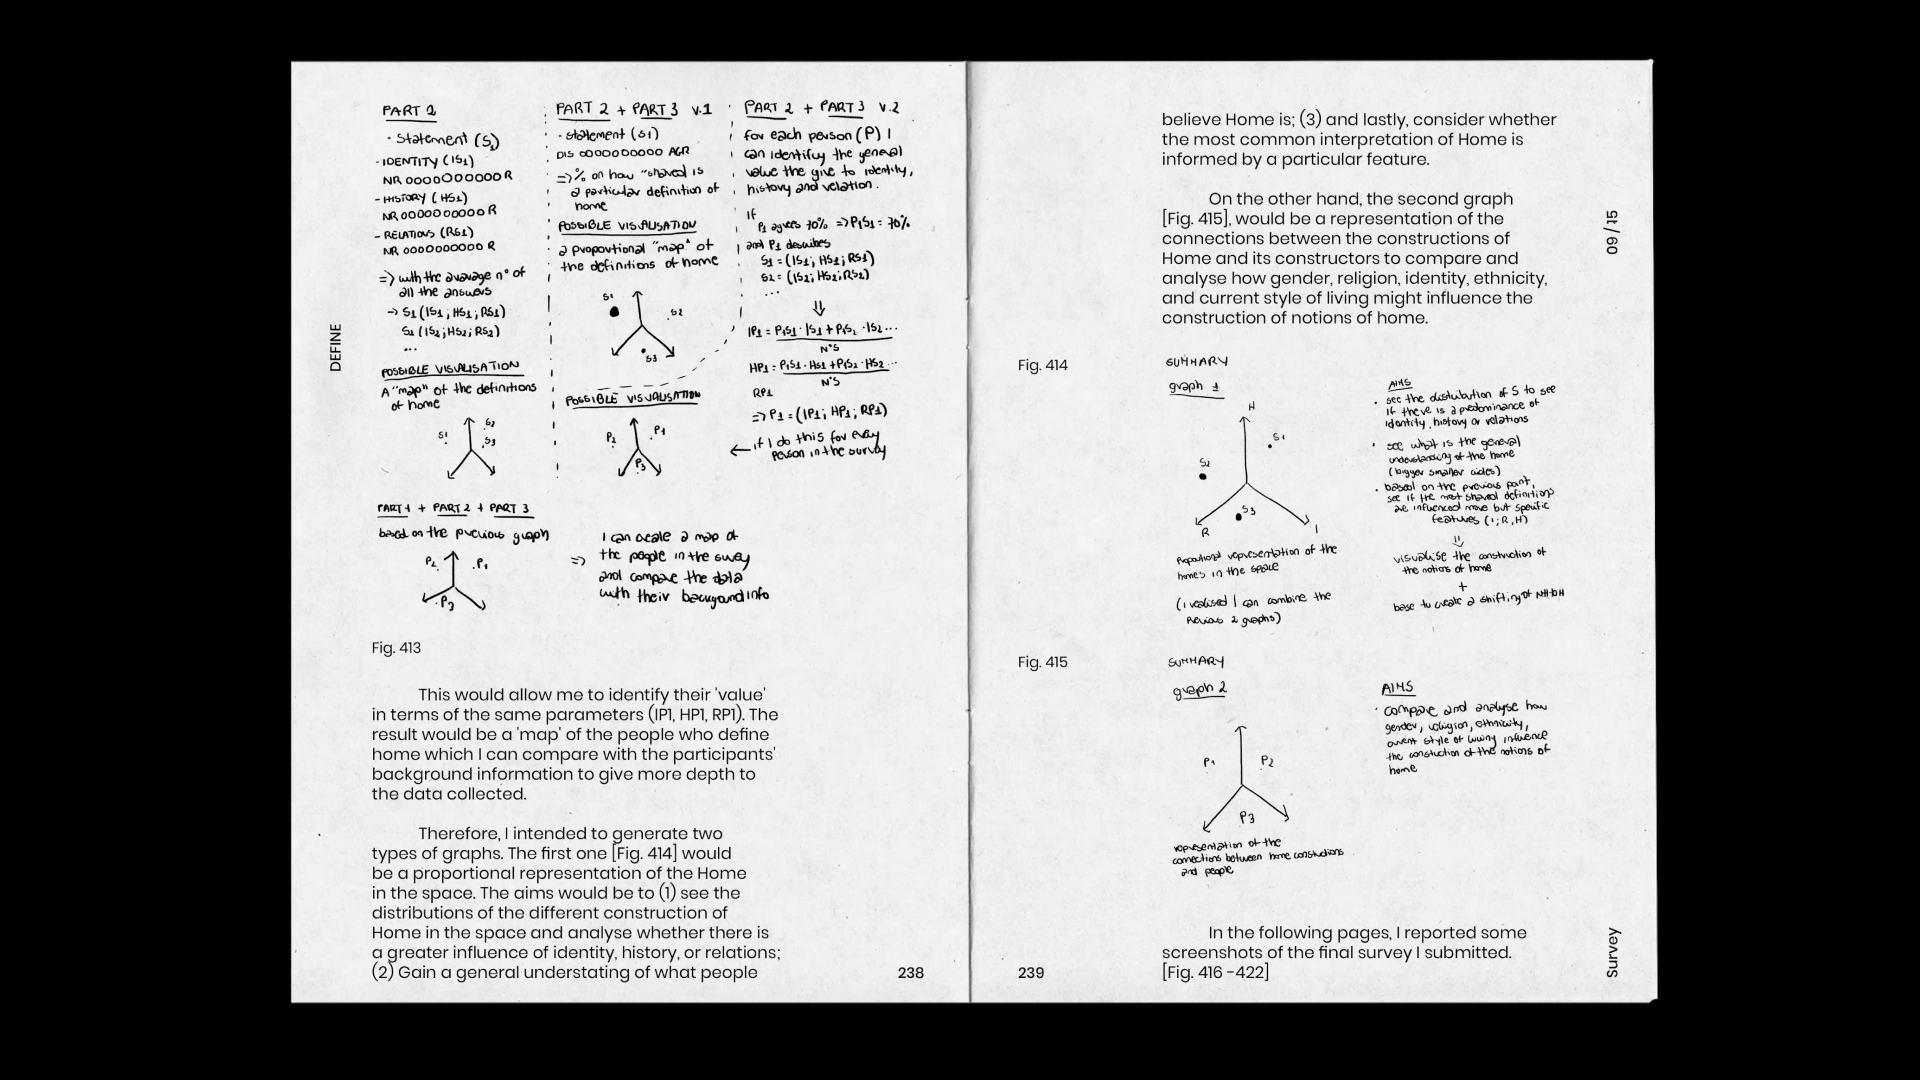 DEFINE
PART 2
· Statement (S1)
- IDENTITY (IS1)
NR OOOOOOOOOO R
- HISTORY (HS1)
NR OOOOOOOOOO R
- RELATIONS (RS1)
NR OOOOOOOOOO R
=> with the average n° of
all the answers
-> S1 (IS1, HS1; RS1)
S2 (IS2; HS2; RS2)
...
POSSIBLE VISUALISATION
A "map" of the definitions
of home
S1
S2
S3
PART 2 + PART 3 V.1
· statement (S1)
DIS OOOOOOOOOO AGR
=> % on how "shared is
a particular definition of
home
POSSIBLE VISUALISATION
a proportional "map" of
the definitions of home
S1
S2
S3
POSSIBLE VISUALISATION
P2
P1
P3
PART 2 + PART 3 V.2
for each person (P) I
can identifuy the general
value the give to identity,
history and relation.
If
P1 agrees 70% => P1S1 = 70%
and P1 describes
S1 = (IS1; HS1; RS1)
S2 = (IS2; HS2; RS2)
...
IP1 = P1S1 · IS1 + P1S2 · IS2 ...
N°S
HP1 = P1S1 · HS1 + P1S2 · HS2 ...
N°S
RP1
=> P1 = (IP1; HP1; RP1)
<- if I do this for every
person in the survey
PART 1 + PART 2 + PART 3
based on the previous graph
P2
P1
P3
=>
I can create a map of
the people in the survey
and compare the data
with their background info
Fig. 413
This would allow me to identify their 'value'
in terms of the same parameters (IP1, HP1, RP1). The
result would be a 'map' of the people who define
home which I can compare with the participants'
background information to give more depth to
the data collected.
Therefore, I intended to generate two
types of graphs. The first one [Fig. 414] would
be a proportional representation of the Home
in the space. The aims would be to (1) see the
distributions of the different construction of
Home in the space and analyse whether there is
a greater influence of identity, history, or relations;
(2) Gain a general understating of what people
238
believe Home is; (3) and lastly, consider whether
the most common interpretation of Home is
informed by a particular feature.
On the other hand, the second graph
[Fig. 415], would be a representation of the
connections between the constructions of
Home and its constructors to compare and
analyse how gender, religion, identity, ethnicity,
and current style of living might influence the
construction of notions of home.
09 / 15
Fig. 414
SUMMARY
graph 1
H
S1
S2
S3
R
I
Proportional representation of the
homes in the space
(I realised I can combine the
previous 2 graphs)
AIMS
· see the distribution of S to see
if there is a predominance of
identity, history or relations
· see what is the general
understanding of the home
(bigger smaller circles)
· based on the previous point,
see if the most shared definitions
are influenced more but specific
features (I; R, H)
visualise the construction of
the notions of home
+
base to create a shifting of
Fig. 415
SUMMARY
graph 2
P1
P2
P3
representation of the
connections between home constructions
and people
AIMS
· compare and analyse how
gender, religion, ethnicity,
current style of living influence
the construction of the notions of
home
In the following pages, I reported some
screenshots of the final survey I submitted.
[Fig. 416 -422]
239
Survey